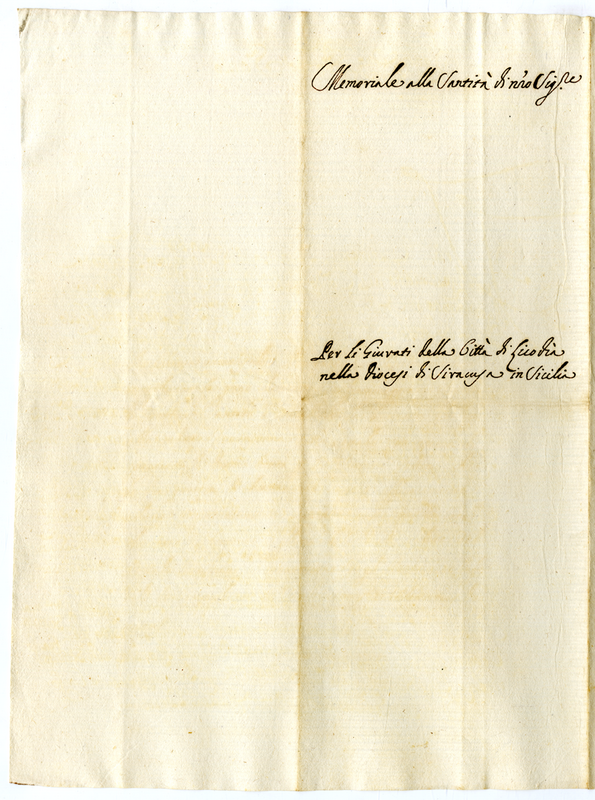 Memoriale alla Santità di n'ro Sig.re
Per li Giurati della Città di Licodia
nella diocesi di Siracusa in Sicilia